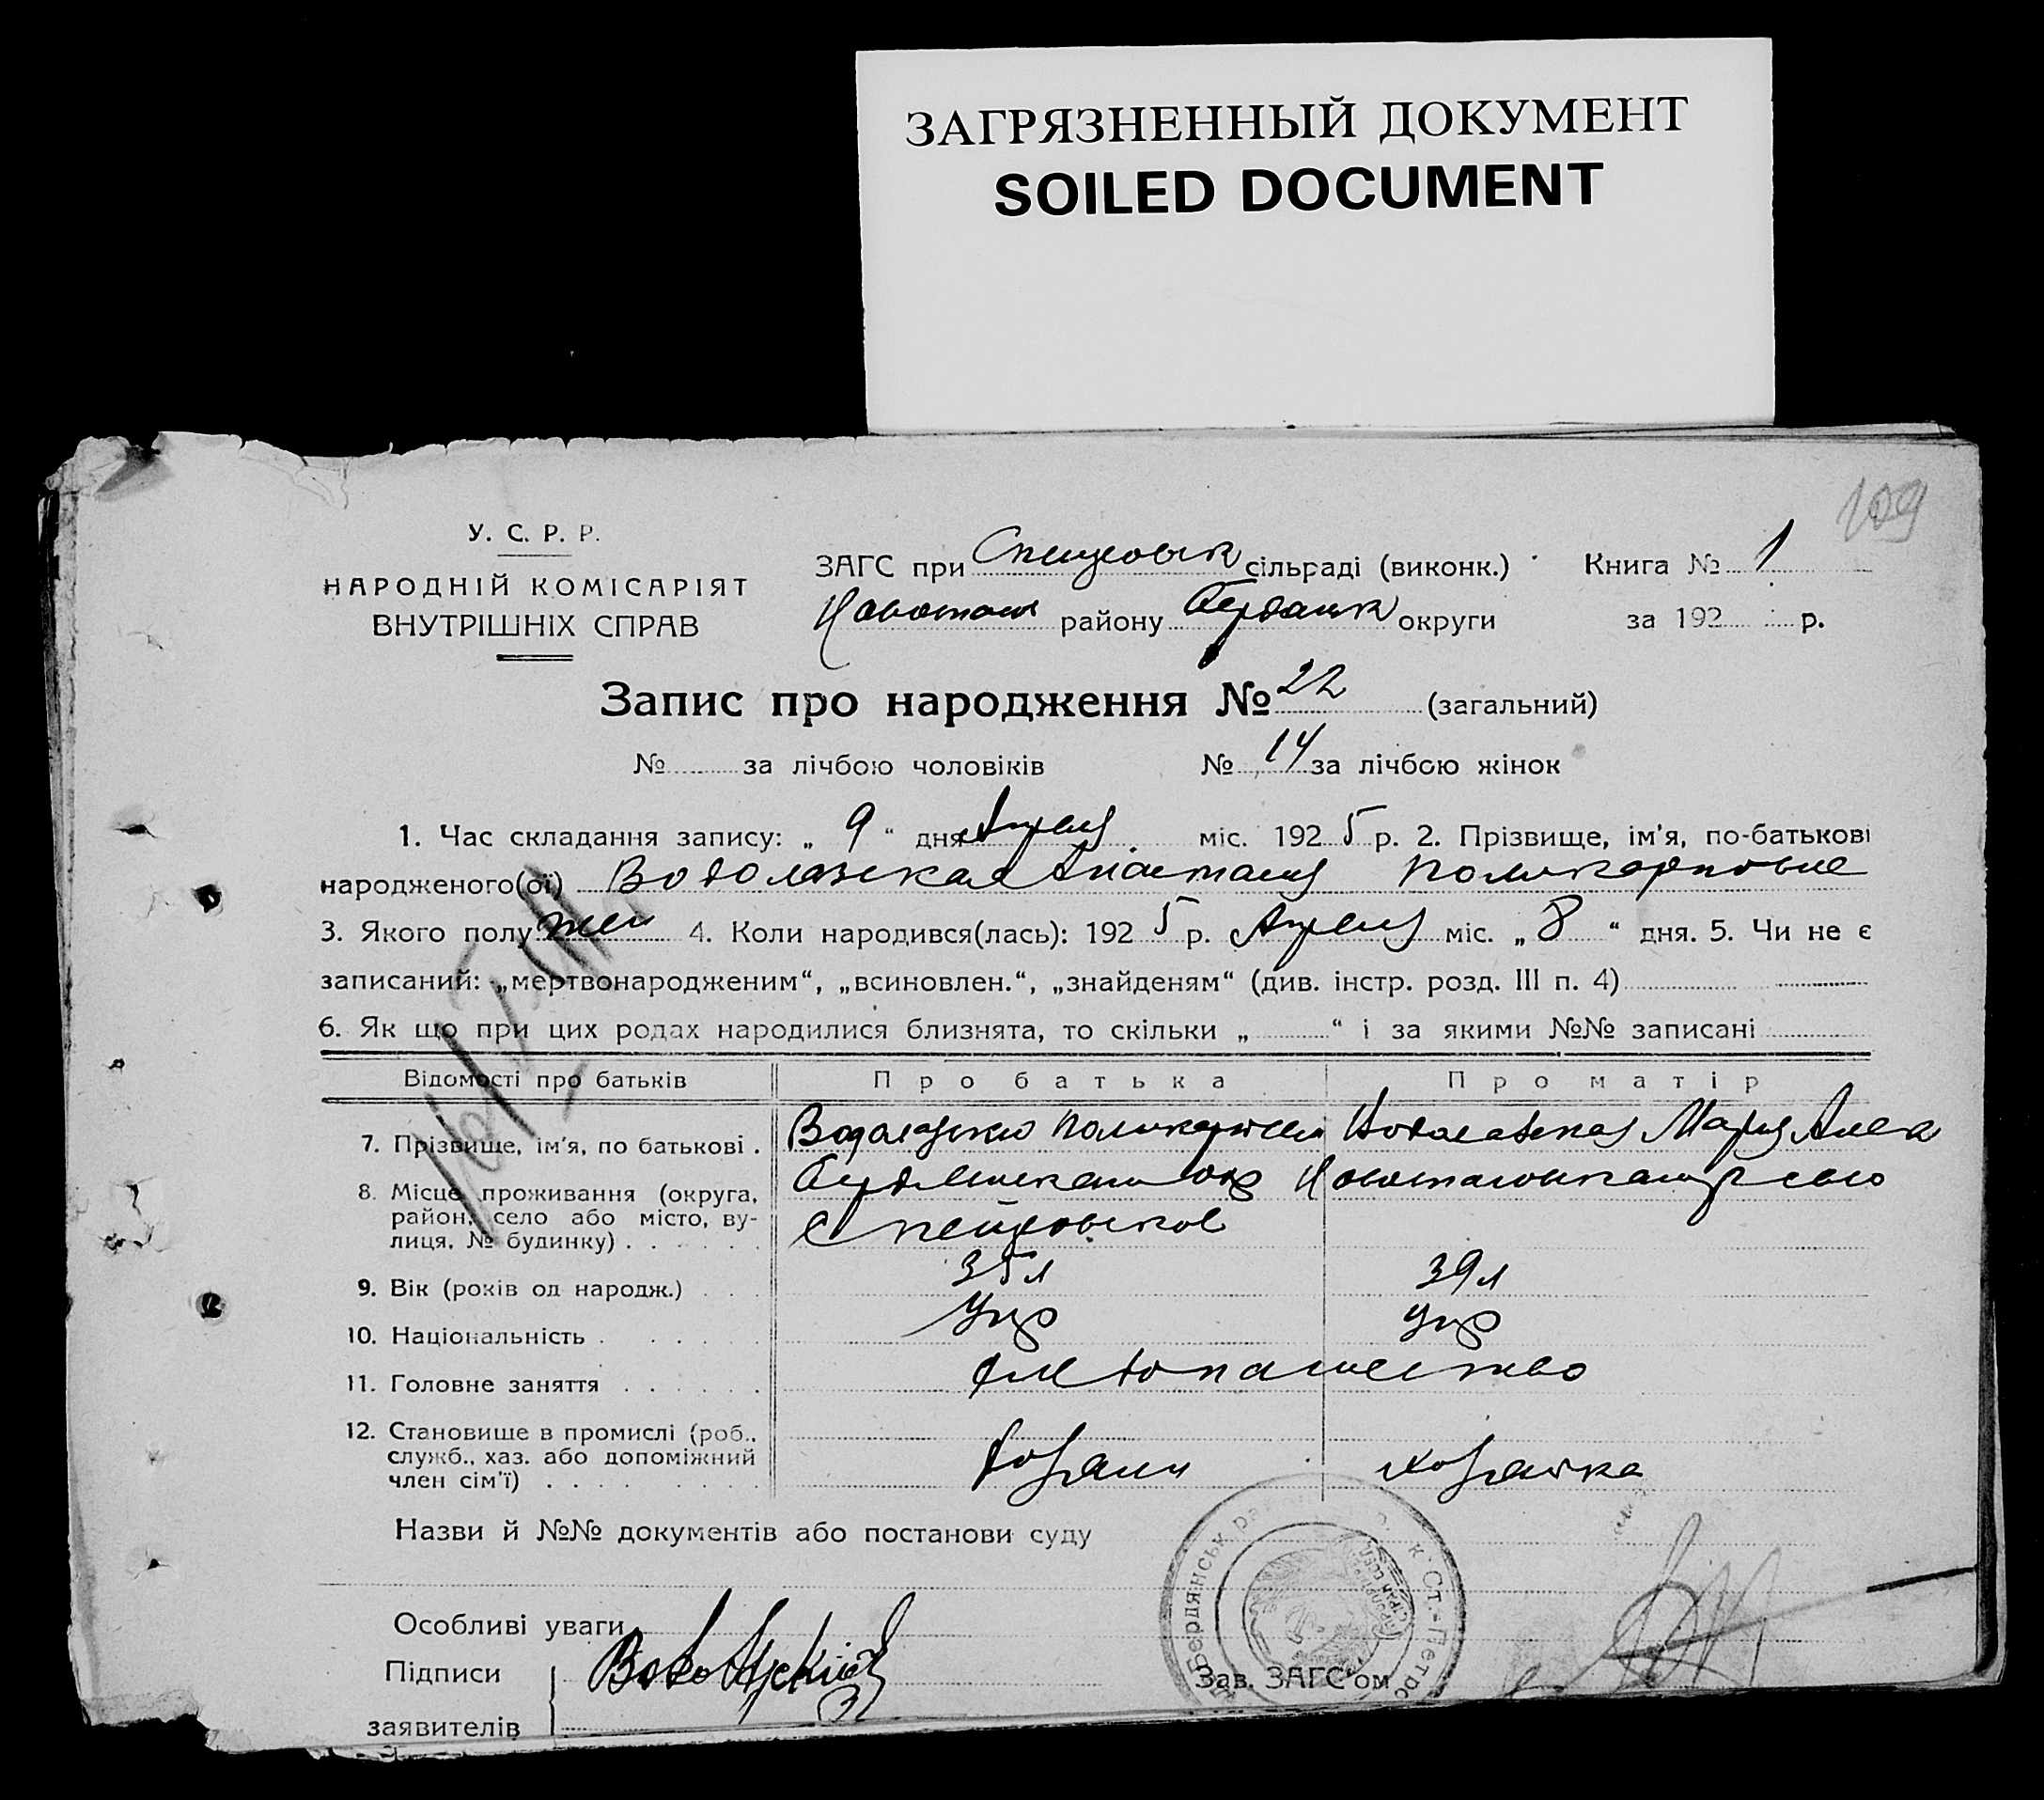 ЗАГРЯЗНЕННЫЙ ДОКУМЕНТ
SOILED DOCUMENT
109
У. С. Р. Р.
НАРОДНІЙ КОМІСАРІЯТ
ВНУТРІШНІХ СПРАВ
ЗАГС при сільраді (виконк.)
району округи
Книга № 1
за 192 р.
Запис про народження № 22 (загальний)
№ за лічбою чоловіків № 14 за лічбою жінок
1. Час складання запису: „ 9 “ дня Апреля міс. 192 5 р. 2. Прізвище, ім'я, по-батькові
народженого(ої) Водолазская Анастасия Поликарповна
3. Якого полу жен 4. Коли народився(лась): 192 5 р. Апреля міс. „ 8 “ дня. 5. Чи не є
записаний: „мертвонародженим“, „всиновлен.“, „знайденям“ (див. інстр. розд. III п. 4)
6. Як що при цих родах народилися близнята, то скільки „ “ і за якими №№ записані
Відомості про батьків Про батька Про матір
7. Прізвище, ім'я, по батькові . Водолазский Мария Алек
8. Місце проживання (округа,
район, село або місто, ву-
лиця, № будинку) . . . . . .
9. Вік (років од народж.) . . . 35 л 39 л
10. Національність . . . . . Укр Укр
11. Головне заняття . . . . . . хлебопашество
12. Становище в промислі (роб.,
служб., хаз. або допоміжний
член сім'ї) . . . . . . . . хозяин хозяйка
Назви й №№ документів або постанови суду
Особливі уваги
Підписи
заявителів
Зав. ЗАГС'ом